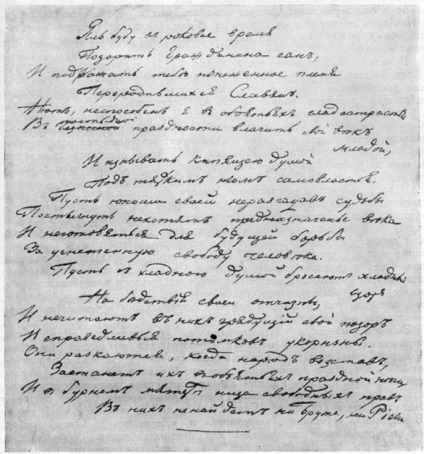 Яль буду въ роковое время
Позорить Гражданина санъ,
И подражать тебѣ изнеженное племя
Переродившихся Славянъ.
Нѣтъ, неспособенъ я въ объятьяхъ сладострастья
постыдной
Въ праздности влачить свой вѣкъ
младой,
И изнывать кипящею душой
Подъ тяжкимъ игомъ самовластья.
Пусть юноши своей неразгадавъ судьбы
Постигнуть нехотятъ предназначенье вѣка
И неготовятся для будущей борьбы
За угнетенную свободу человѣка.
Пусть съ хладною душой бросаютъ хладный
взоръ
На бѣдствия своей отчизны,
И нечитаютъ въ нихъ грядущий свой позоръ
И справедливыя потомковъ укоризны.
Они раскаются, когда народъ возставъ,
Застанетъ ихъ въ объятьяхъ праздной нѣги
И въ бурномъ мятежѣ ища свободныхъ правъ
Въ нихъ ненайдетъ ни Брута, ни Ріеги